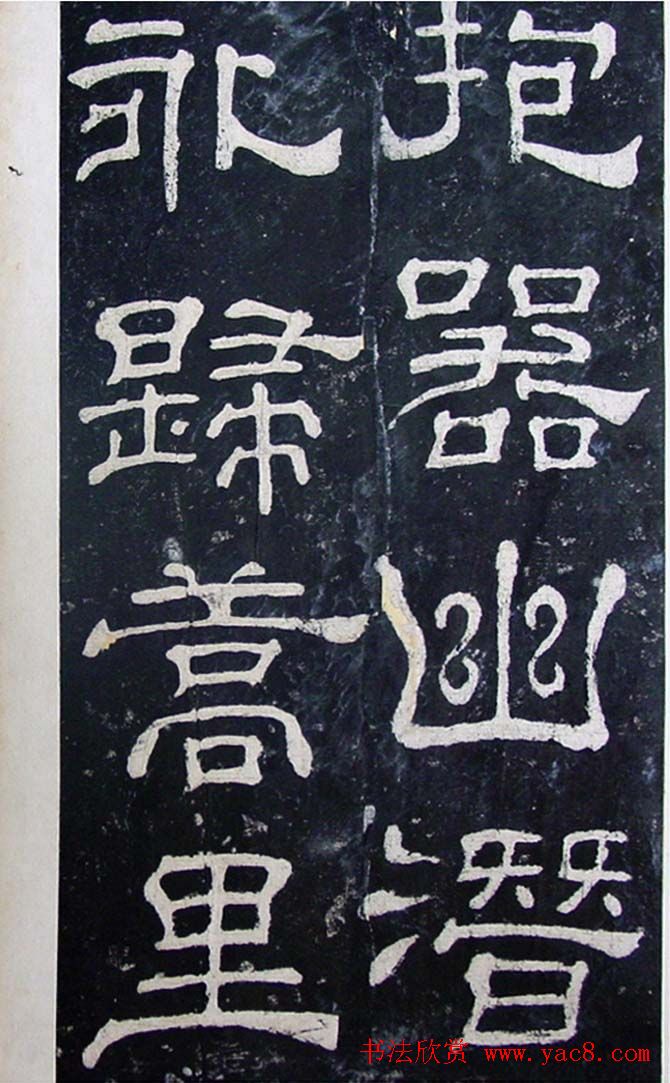 抱器幽潛
永歸蒿里
书法欣赏 www.yac8.com